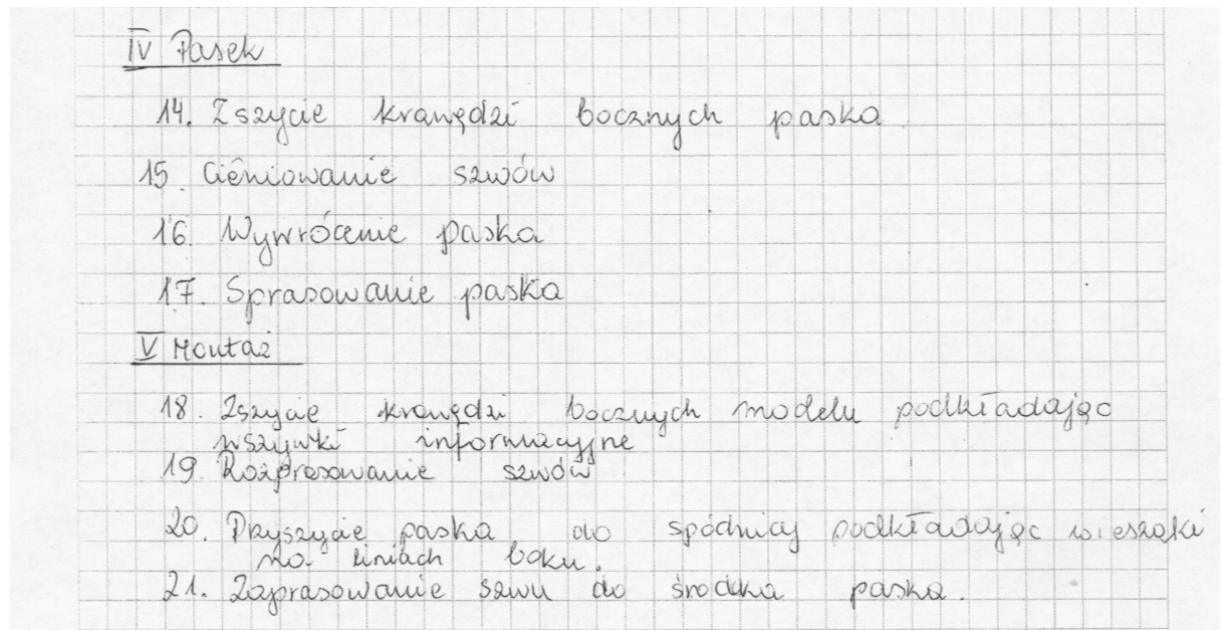 IV Pasek
14. Zszycie krawędzi bocznych paska.
15. Cieniowanie szwów
16. Wywrócenie paska
17. Sprasowanie paska
V Montaż
18. Zszycie krawędzi bocznych modelu podkładając
wszywki informacyjne
19. Rozprasowanie szwów
20. Przyszycie paska do spódnicy podkładając wieszaki
na liniach boku.
21. Zaprasowanie szwu do środka paska.